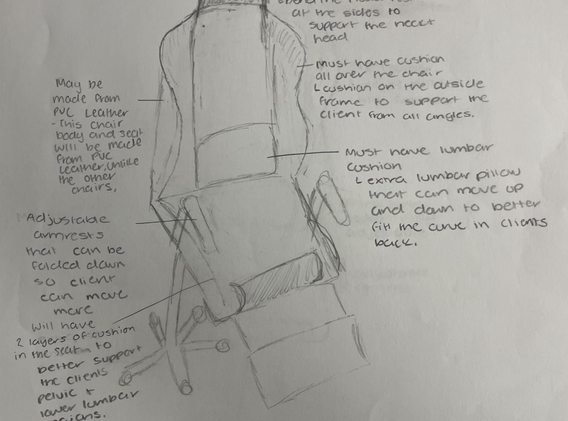 at the sides to
support the neck
head
Must have cushion
all over the chair
L cushion on the outside
frame to support the
client from all angles.
May be
made from
PVC Leather
- This chair
body and seat
will be made
from PVC
Leather, Unlike
the other
chairs.
Must have lumbar
cushion
L extra lumbar pillow
that can move up
and down to better
fit the curve in clients
back.
Adjustable
armrests
that can be
folded down
so client
can move
more
Will have
2 layers of cushion
in the seat to
better support
the clients
pelvic +
lower lumbar